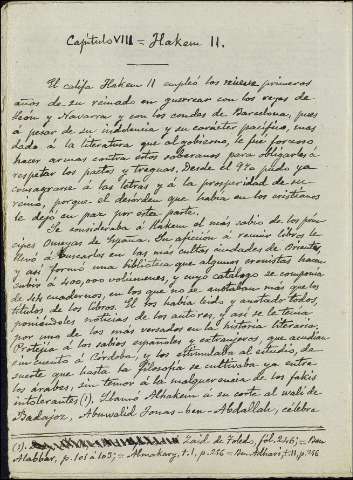 Capítulo VIII = Hakem II.
El califa Hakem II empleó los nueve primeros
años de su reinado en guerrear con los reyes de
León y Navarra y con los condes de Barcelona, pues
á pesar de su indolencia y su carácter pacífico, mas
dado á la literatura que al gobierno, le fué forzoso
hacer armas contra estos soberanos para obligarles á
respetar los pactos y treguas. Desde el 970 pudo ya
consagrarse á las letras y á la prosperidad de su
reino, porque el desórden que habia en los cristianos
le dejó en paz por esta parte.
Se consideraba á Hakem el mas sabio de los prín-
cipes Omeyas de España. Su aficion á reunir libros le
llevó á buscarlos en las más cultas ciudades de Oriente,
y así formó una biblioteca que algunos cronistas hacen
subir á 400,000 volumenes, y cuyo catálogo se componia
de 44 cuadernos, en los que no se anotaban más que los
títulos de los libros. El los habia leido y anotado todos,
poniéndoles noticias de los autores, y así se le tenia
por uno de los más versados en la historia literaria.
Protegia á los sabios españoles y extranjeros, que acudian
sin cuento á Córdoba, y los estimulaba al estudio, de
suerte que hasta la filosofia se cultivaba ya entre
los árabes, sin temor á la malquerencia de los fakis
intolerantes (1). Llamó Alhakem á su corte al wali de
Badajoz, Abuwalid Jonas-ben-Abdallah, célebre
(1). Zaid de Toledo, fól. 246; = Ben
Alabbar, p. 101 á 103; = Almakary, t. I, p. 256 = Ben Adhari, t. II, p. 256